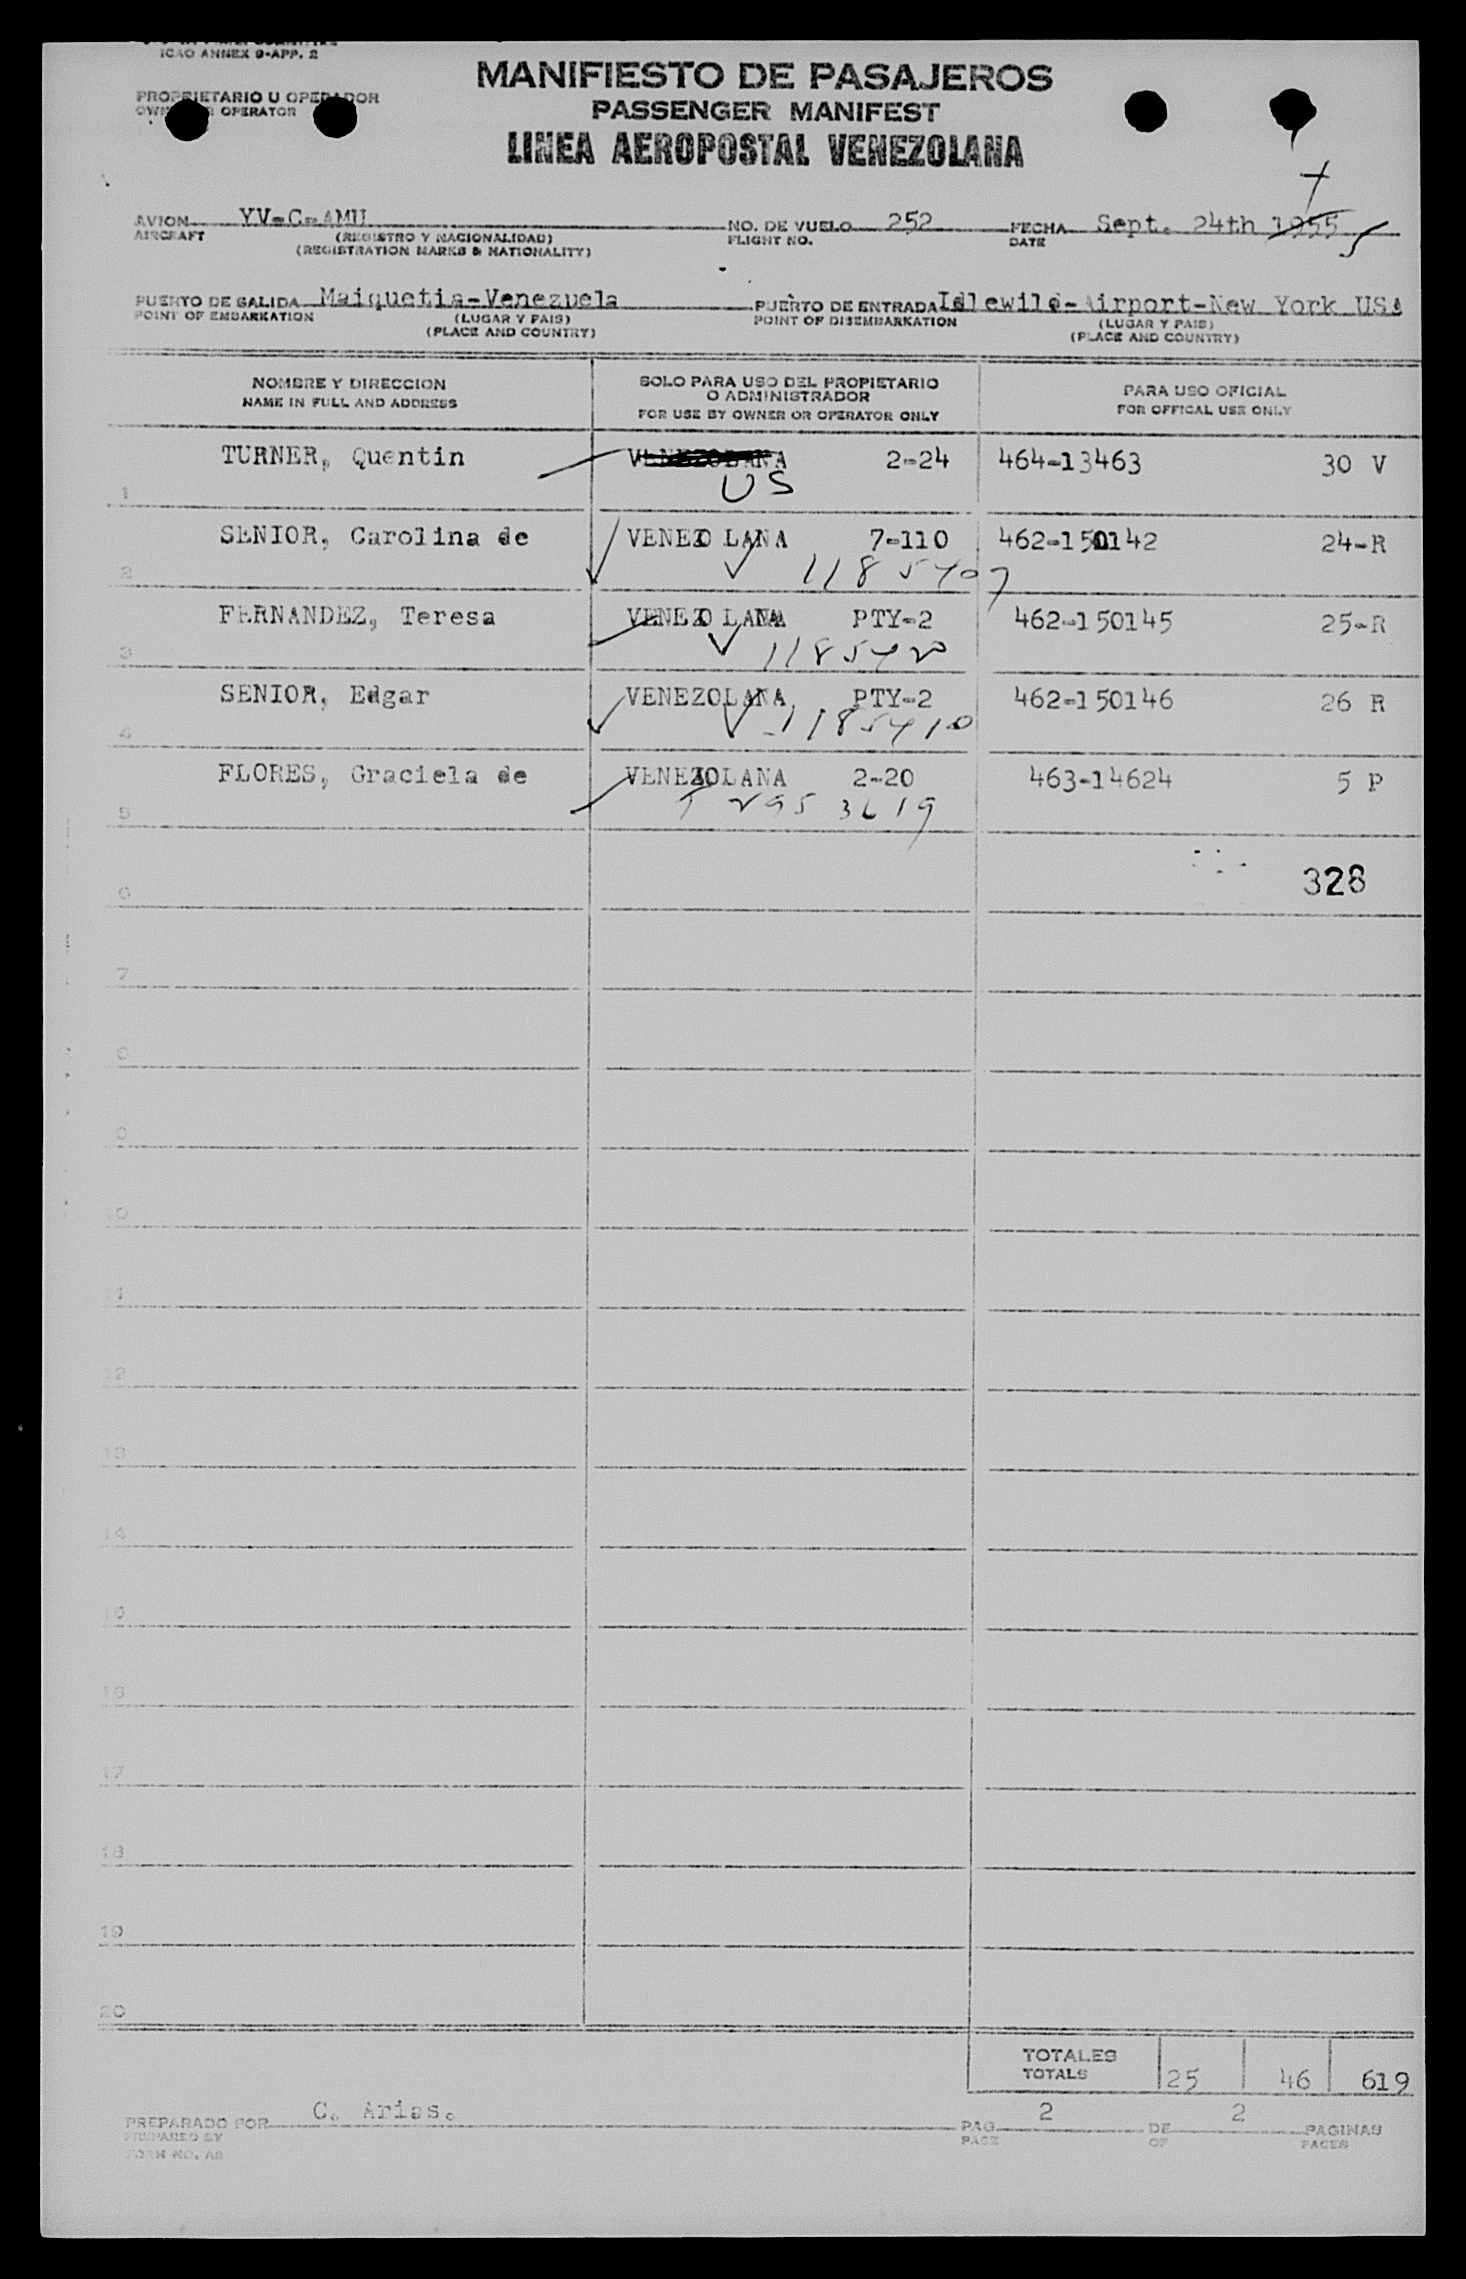 ICAO ANNEX 9-APP. 2
MANIFIESTO DE PASAJEROS
PROPRIETARIO U OPERADOR
OPERATOR
PASSENGER MANIFEST
LINEA AEROPOSTAL VENEZOLANA
AVION YV-C-AMU NO. DE VUELO 252 FECHA Sept. 24th 1955 5
AIRCRAFT (REGISTRO Y NACIONALIDAD) FLIGHT NO. DATE
(REGISTRATION MARKS & NATIONALITY)
PUERTO DE SALIDA Maiquetia-Venezuela PUERTO DE ENTRADA Idlewild-Airport-New York USA
POINT OF EMBARKATION (LUGAR Y PAIS) POINT OF DISEMBARKATION (LUGAR Y PAIS)
(PLACE AND COUNTRY) (PLACE AND COUNTRY)
NOMBRE Y DIRECCION SOLO PARA USO DEL PROPIETARIO PARA USO OFICIAL
NAME IN FULL AND ADDRESS O ADMINISTRADOR FOR OFFICAL USE ONLY
FOR USE BY OWNER OR OPERATOR ONLY
TURNER, Quentin VENEZOLANA 2-24 464-13463 30 V
1 US
SENIOR, Carolina de VENEZOLANA 7-110 462-150142 24-R
2 1185407
FERNANDEZ, Teresa VENEZOLANA PTY-2 462-150145 25-R
3
SENIOR, Edgar VENEZOLANA PTY-2 462-150146 26 R
4 1185410
FLORES, Graciela de VENEZOLANA 2-20 463-14624 5 P
5
6 328
7
8
9
10
11
12
13
14
15
16
17
18
19
20
TOTALES
TOTALS 25 46 619
PREPARADO POR C. Arias. PAG. 2 DE 2 PAGINAS
PREPARED BY PAGE OF PAGES
FORM NO. A8